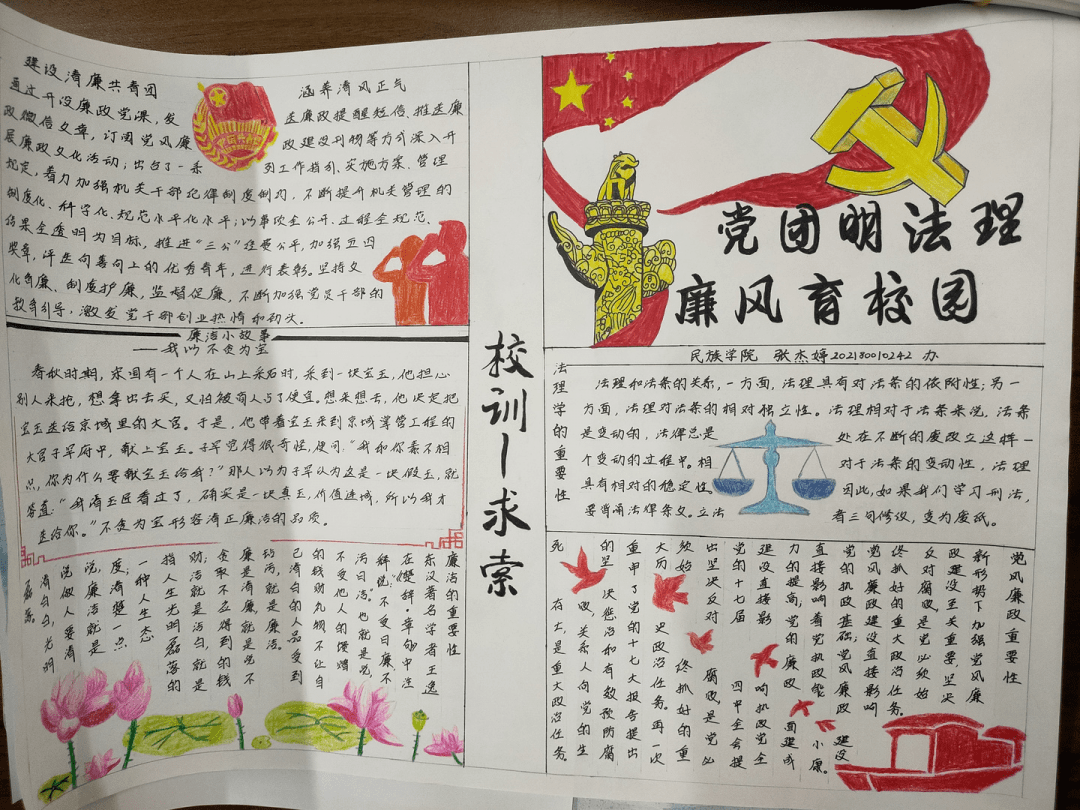 建设清廉共青团
涵养清风正气
通过开设廉政党课,发
送廉政提醒短信,推送廉
政微信文章,订阅党风廉
政建设刊物等方式深入开
展廉政文化活动;出台了一系
列工作指引、实施方案、管理
规定,着力加强机关干部纪律制度制约,不断提升机关管理的
制度化、科学化、规范水平化水平;以事项全公开、过程全规范、
结果全透明为目标,推进“三公”经费公平,加强五四
奖章,评选向善向上的优秀青年,进行表彰,坚持文
化育廉、制度护廉,监督促廉,不断加强党员干部的
教育引导,激发党干部创业热情和劲头.
廉洁小故事
——我以不贪为宝
春秋时期,宋国有一个人在山上采石时,采到一块宝玉,他担心
别人来抢,想拿出去买,又怕被商人占了便宜.想来想去,他决定把
宝玉送给京城里的大官.于是,他带着宝玉来到京城掌管工程的
大官子罕府中,献上宝玉.子罕觉得很奇怪,便问:“我和你素不相
识,你为什么要献宝玉给我?”那人以为子罕认为这是一块假玉,就
答道:“我请玉匠看过了,确实是一块真玉,价值连城,所以我才
送给你。”不贪为宝形容清正廉洁的品质。
廉洁的重要性
东汉著名学者王逸
在《楚辞·章句》中注
释说:“不受曰廉,不
污曰洁。”也就是说,
不受他人的馈赠
的钱财礼物,不让自
己清白的人品受到
玷污,就是廉洁。
贪取不应得到的钱
财;洁就是洁白,就是
指人生光明磊落的
一种人生态
度;清楚一点
说,廉洁就是
说做人要清
清白白,光明
磊落
校训—求索
党团明法理
廉风育校园
民族学院 张杰婷202180010242 办
法理学的重要性
法理和法条的关系,一方面,法理具有对法条的依附性;另一
方面,法理对法条的相对独立性。法理相对于法条来说,法条
是变动的,法律总是
处在不断的废改立这样一
个变动的过程中。相
对于法条的变动性,法理
具有相对的稳定性。
因此,如果我们学习刑法,
要背诵法律条文。立法
者三句修议,变为废纸。
党风廉政重要性
新形势下加强党风廉
政建设至关重要,坚决
反对腐败,是党必须始
终抓好的重大政治任务。
党风廉政建设直接影响
党的执政基础;党风廉政
直接影响着党执政能
力的提高;党的廉政
建设直接影
响执政党全
面建成
小康。
建设
党的十七届
四中全会提
出坚决反对
腐败,是党必
须始
终抓好的重
大历
史政治任务。再一次
重申了党的十七大报告提出
的坚
决惩治和有效预防腐
败,关系人向党的生
死
存亡,是重大政治任务。